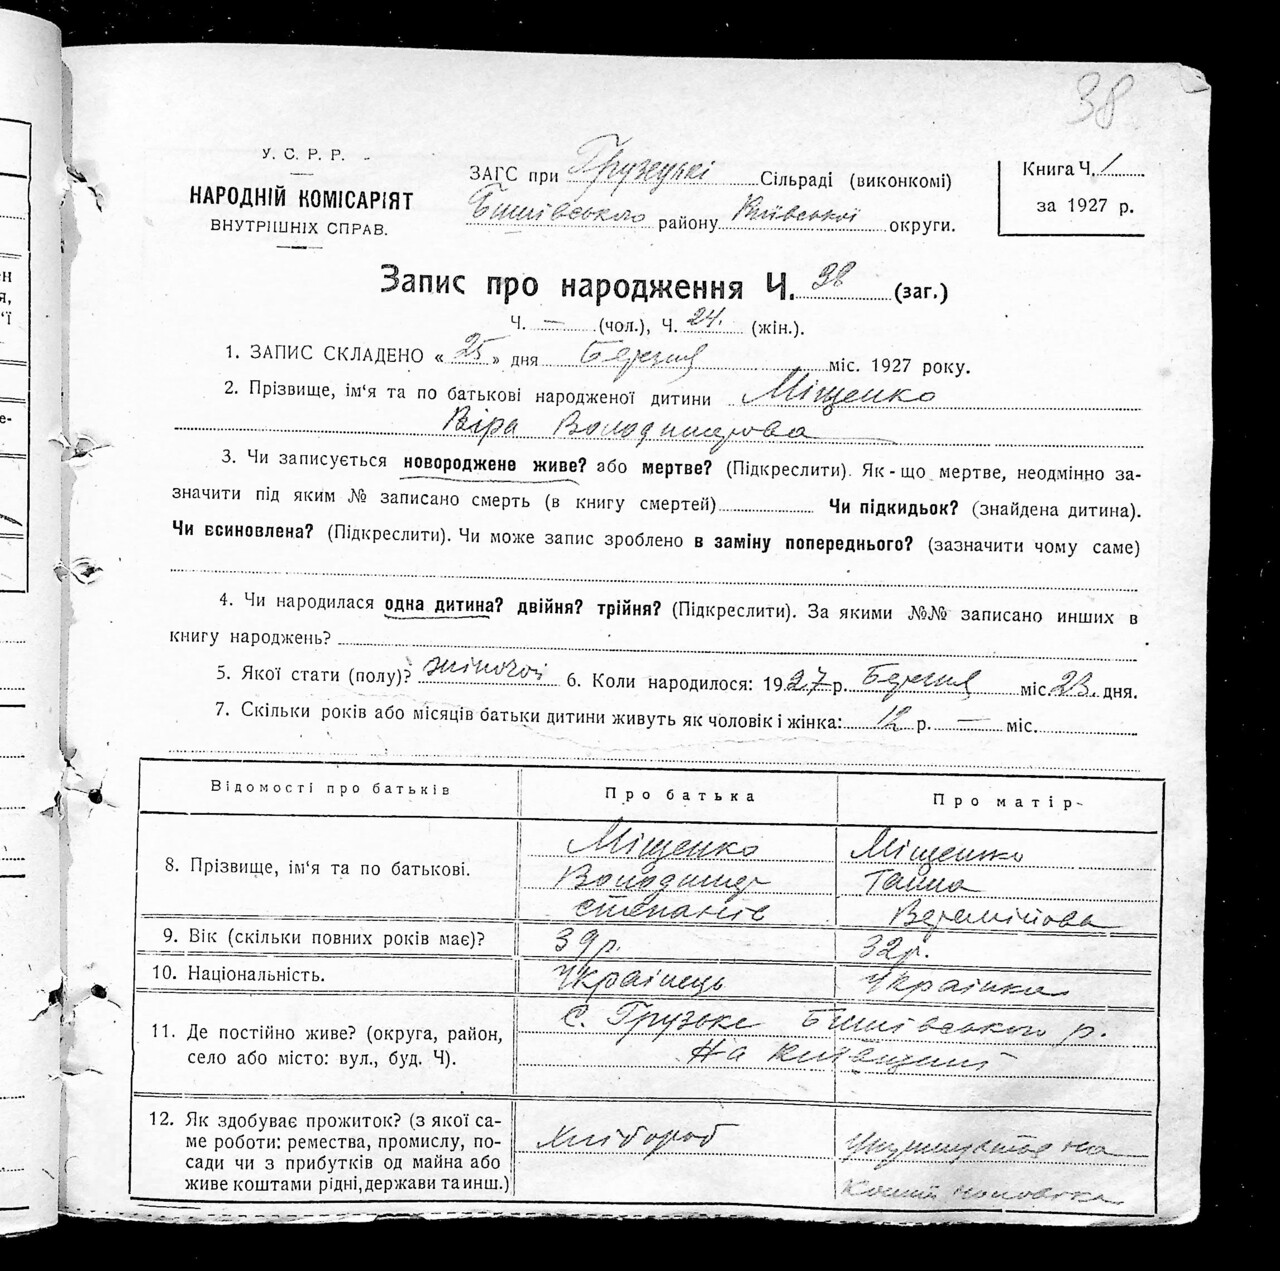 38
У. С. Р. Р.
НАРОДНІЙ КОМІСАРІЯТ
ВНУТРІШНІХ СПРАВ.
ЗАГС при Грузецькі Сільраді (виконкомі)
Бишівського району Київської округи.
Книга Ч. 1
за 1927 р.
Запис про народження Ч. 38 (заг.)
Ч. — (чол.), Ч. 24. (жін.).
1. ЗАПИС СКЛАДЕНО « 25 » дня Березня міс. 1927 року.
2. Прізвище, ім'я та по батькові народженої дитини Міщенко
Віра Володимирова
3. Чи записується новороджене живе? або мертве? (Підкреслити). Як-що мертве, неодмінно за-
значити під яким № записано смерть (в книгу смертей) Чи підкидьок? (знайдена дитина).
Чи всиновлена? (Підкреслити). Чи може запис зроблено в заміну попереднього? (зазначити чому саме)
4. Чи народилася одна дитина? двійня? трійня? (Підкреслити). За якими №№ записано инших в
книгу народжень?
5. Якої стати (полу)? жіночої 6. Коли народилося: 1927 р. Березня міс. 23. дня.
7. Скільки років або місяців батьки дитини живуть як чоловік і жінка: 12 р. — міс.
Відомості про батьків Про батька Про матір
8. Прізвище, ім'я та по батькові.
Міщенко Міщенко
Володимир
Степанів Веремійова
9. Вік (скільки повних років має)? 39 р. 32 р.
10. Національність. Українець Українка
11. Де постійно живе? (округа, район,
село або місто: вул., буд. Ч).
с. Грузьке Бишівського р.
На Київщині
12. Як здобуває прожиток? (з якої са-
ме роботи: ремества, промислу, по-
сади чи з прибутків од майна або
живе коштами рідні, держави та инш.)
Хлібороб на
кошти чоловіка